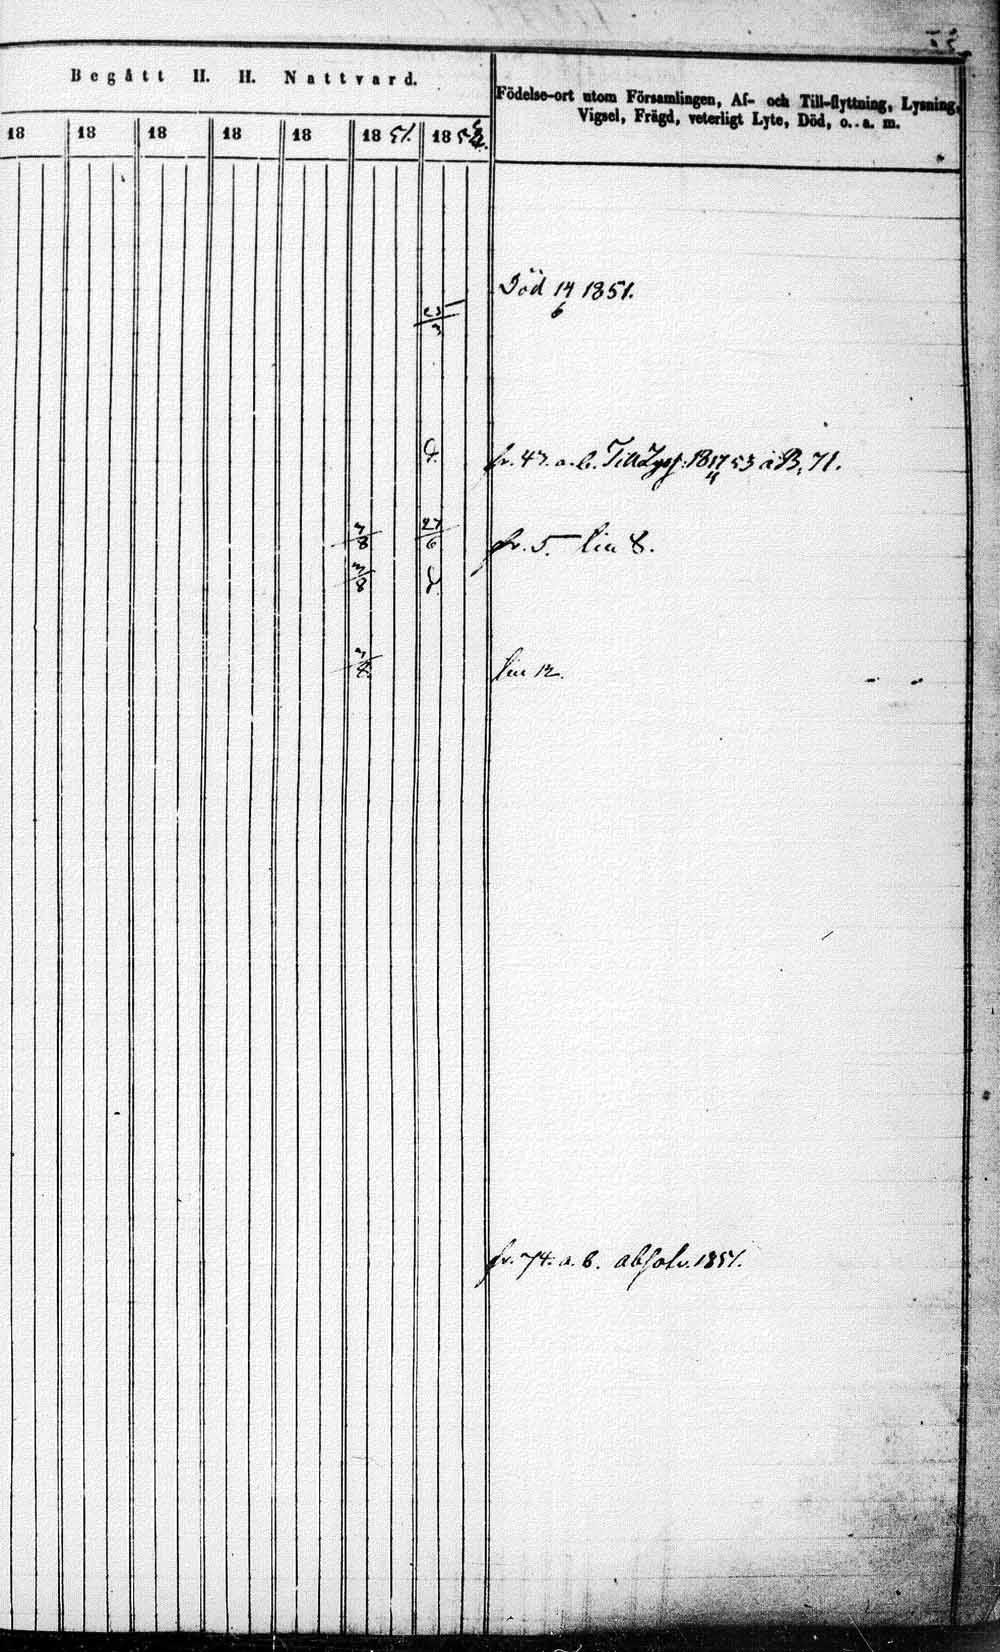 Begått H. H. Nattvard.
Födelse-ort utom Församlingen, Af- och Till-flyttning, Lysning,
Vigsel, Frägd, veterligt Lyte, Död, o. a. m.
18 18 18 18 18 1851. 185
Död 14/6 1851.
23/3
d. fr. 47. a. b. Till 1817/4 53 à B, 71.
3/8 27/6 fr. 5. lin 8.
3/8
3/8. lin 12.
fr. 74. a. b. absolv. 1851.